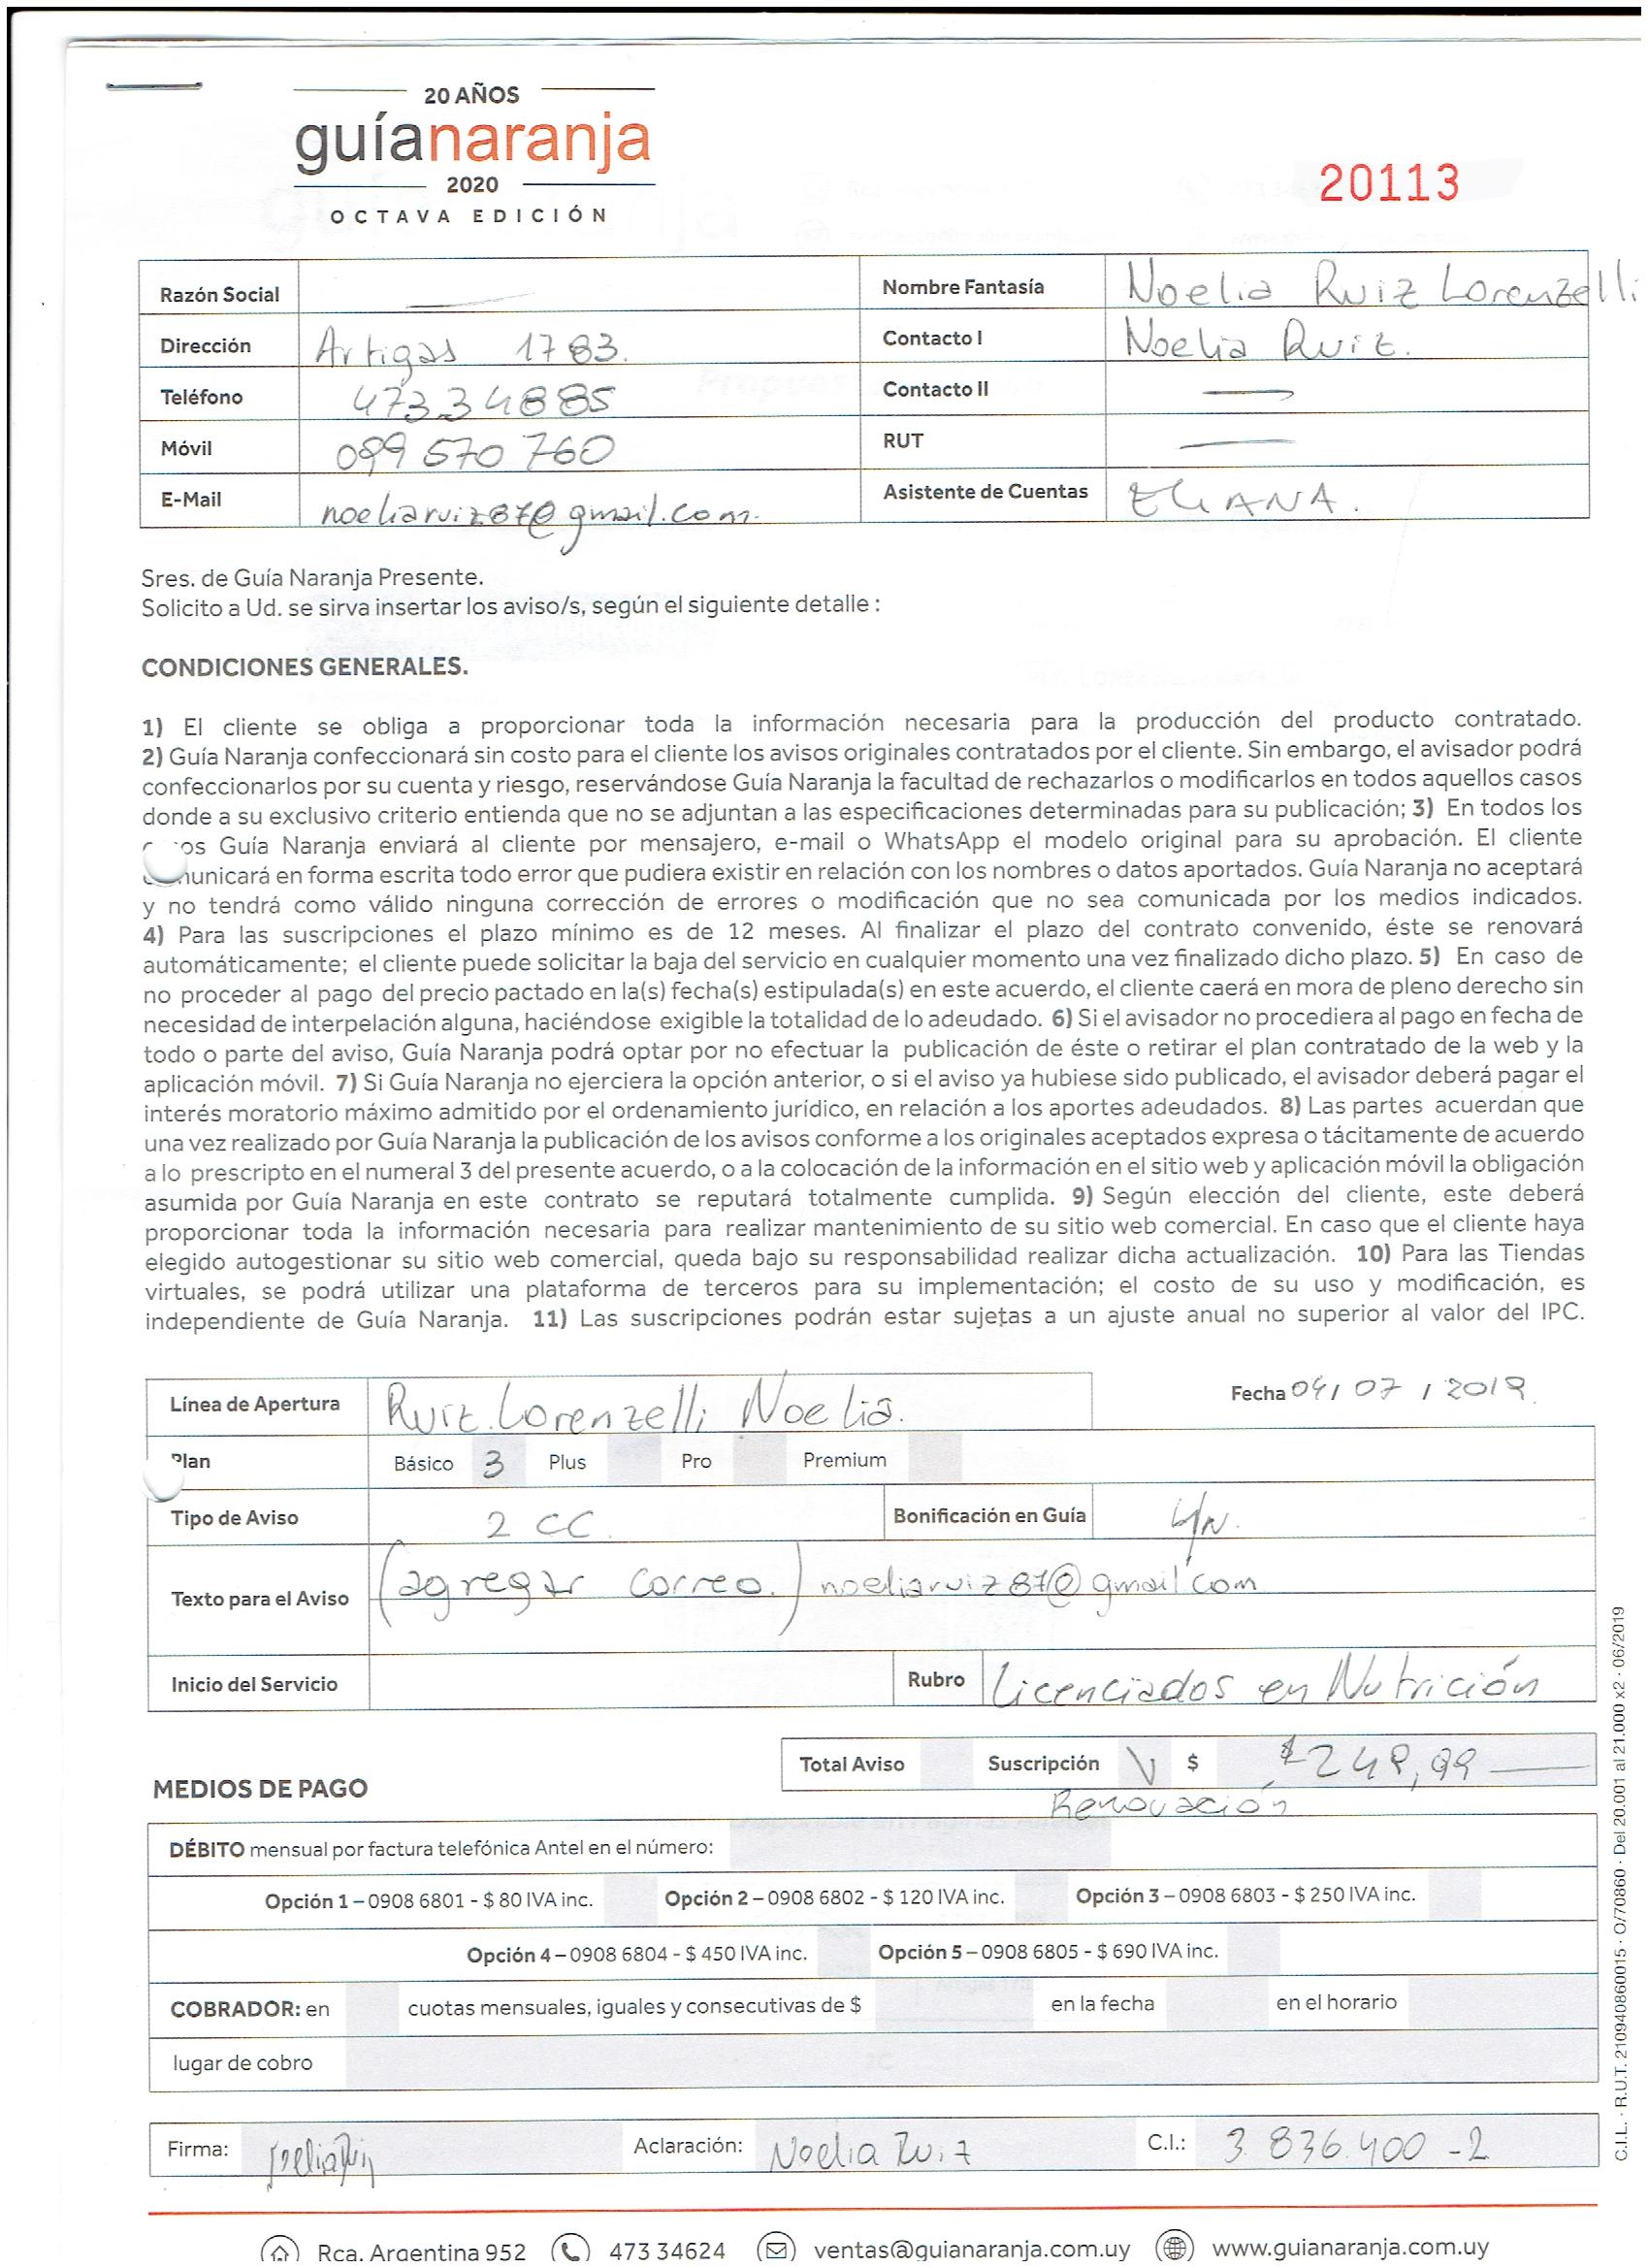 20 AÑOS
guíanaranja
2020
OCTAVA EDICIÓN
20113
Razón Social
Nombre Fantasía Noelia Ruiz Lorenzelli
Dirección Artigas 1783.
Contacto I Noelia Ruiz.
Teléfono 473 34885
Contacto II
Móvil 099 570 760
RUT
E-Mail noeliaruiz87@gmail.com.
Asistente de Cuentas ELIANA.
Sres. de Guía Naranja Presente.
Solicito a Ud. se sirva insertar los aviso/s, según el siguiente detalle :
CONDICIONES GENERALES.
1) El cliente se obliga a proporcionar toda la información necesaria para la producción del producto contratado.
2) Guía Naranja confeccionará sin costo para el cliente los avisos originales contratados por el cliente. Sin embargo, el avisador podrá
confeccionarlos por su cuenta y riesgo, reservándose Guía Naranja la facultad de rechazarlos o modificarlos en todos aquellos casos
donde a su exclusivo criterio entienda que no se adjuntan a las especificaciones determinadas para su publicación; 3) En todos los
os Guía Naranja enviará al cliente por mensajero, e-mail o WhatsApp el modelo original para su aprobación. El cliente
unicará en forma escrita todo error que pudiera existir en relación con los nombres o datos aportados. Guía Naranja no aceptará
y no tendrá como válido ninguna corrección de errores o modificación que no sea comunicada por los medios indicados.
4) Para las suscripciones el plazo mínimo es de 12 meses. Al finalizar el plazo del contrato convenido, éste se renovará
automáticamente; el cliente puede solicitar la baja del servicio en cualquier momento una vez finalizado dicho plazo. 5) En caso de
no proceder al pago del precio pactado en la(s) fecha(s) estipulada(s) en este acuerdo, el cliente caerá en mora de pleno derecho sin
necesidad de interpelación alguna, haciéndose exigible la totalidad de lo adeudado. 6) Si el avisador no procediera al pago en fecha de
todo o parte del aviso, Guía Naranja podrá optar por no efectuar la publicación de éste o retirar el plan contratado de la web y la
aplicación móvil. 7) Si Guía Naranja no ejerciera la opción anterior, o si el aviso ya hubiese sido publicado, el avisador deberá pagar el
interés moratorio máximo admitido por el ordenamiento jurídico, en relación a los aportes adeudados. 8) Las partes acuerdan que
una vez realizado por Guía Naranja la publicación de los avisos conforme a los originales aceptados expresa o tácitamente de acuerdo
a lo prescripto en el numeral 3 del presente acuerdo, o a la colocación de la información en el sitio web y aplicación móvil la obligación
asumida por Guía Naranja en este contrato se reputará totalmente cumplida. 9) Según elección del cliente, este deberá
proporcionar toda la información necesaria para realizar mantenimiento de su sitio web comercial. En caso que el cliente haya
elegido autogestionar su sitio web comercial, queda bajo su responsabilidad realizar dicha actualización. 10) Para las Tiendas
virtuales, se podrá utilizar una plataforma de terceros para su implementación; el costo de su uso y modificación, es
independiente de Guía Naranja. 11) Las suscripciones podrán estar sujetas a un ajuste anual no superior al valor del IPC.
Línea de Apertura Ruiz Lorenzelli Noelia.
Fecha 04/07/2019
Plan Básico 3 Plus Pro Premium
Tipo de Aviso 2 CC.
Bonificación en Guía
Texto para el Aviso (agregar correo.) noeliaruiz87@gmail.com
Inicio del Servicio
Rubro Licenciados en Nutrición
Total Aviso Suscripción $ $249,99
Renovación
MEDIOS DE PAGO
DÉBITO mensual por factura telefónica Antel en el número:
Opción 1 – 0908 6801 - $ 80 IVA inc. Opción 2 – 0908 6802 - $ 120 IVA inc. Opción 3 – 0908 6803 - $ 250 IVA inc.
Opción 4 – 0908 6804 - $ 450 IVA inc. Opción 5 – 0908 6805 - $ 690 IVA inc.
COBRADOR: en cuotas mensuales, iguales y consecutivas de $ en la fecha en el horario
lugar de cobro
Firma: Noelia Ruiz Aclaración: Noelia Ruiz C.I.: 3.836.400-2
Rca. Argentina 952 473 34624 ventas@guianaranja.com.uy www.guianaranja.com.uy
C.I.L. · R.U.T. 210940860015 · O/70860 · Del 20.001 al 21.000 x2 · 06/2019